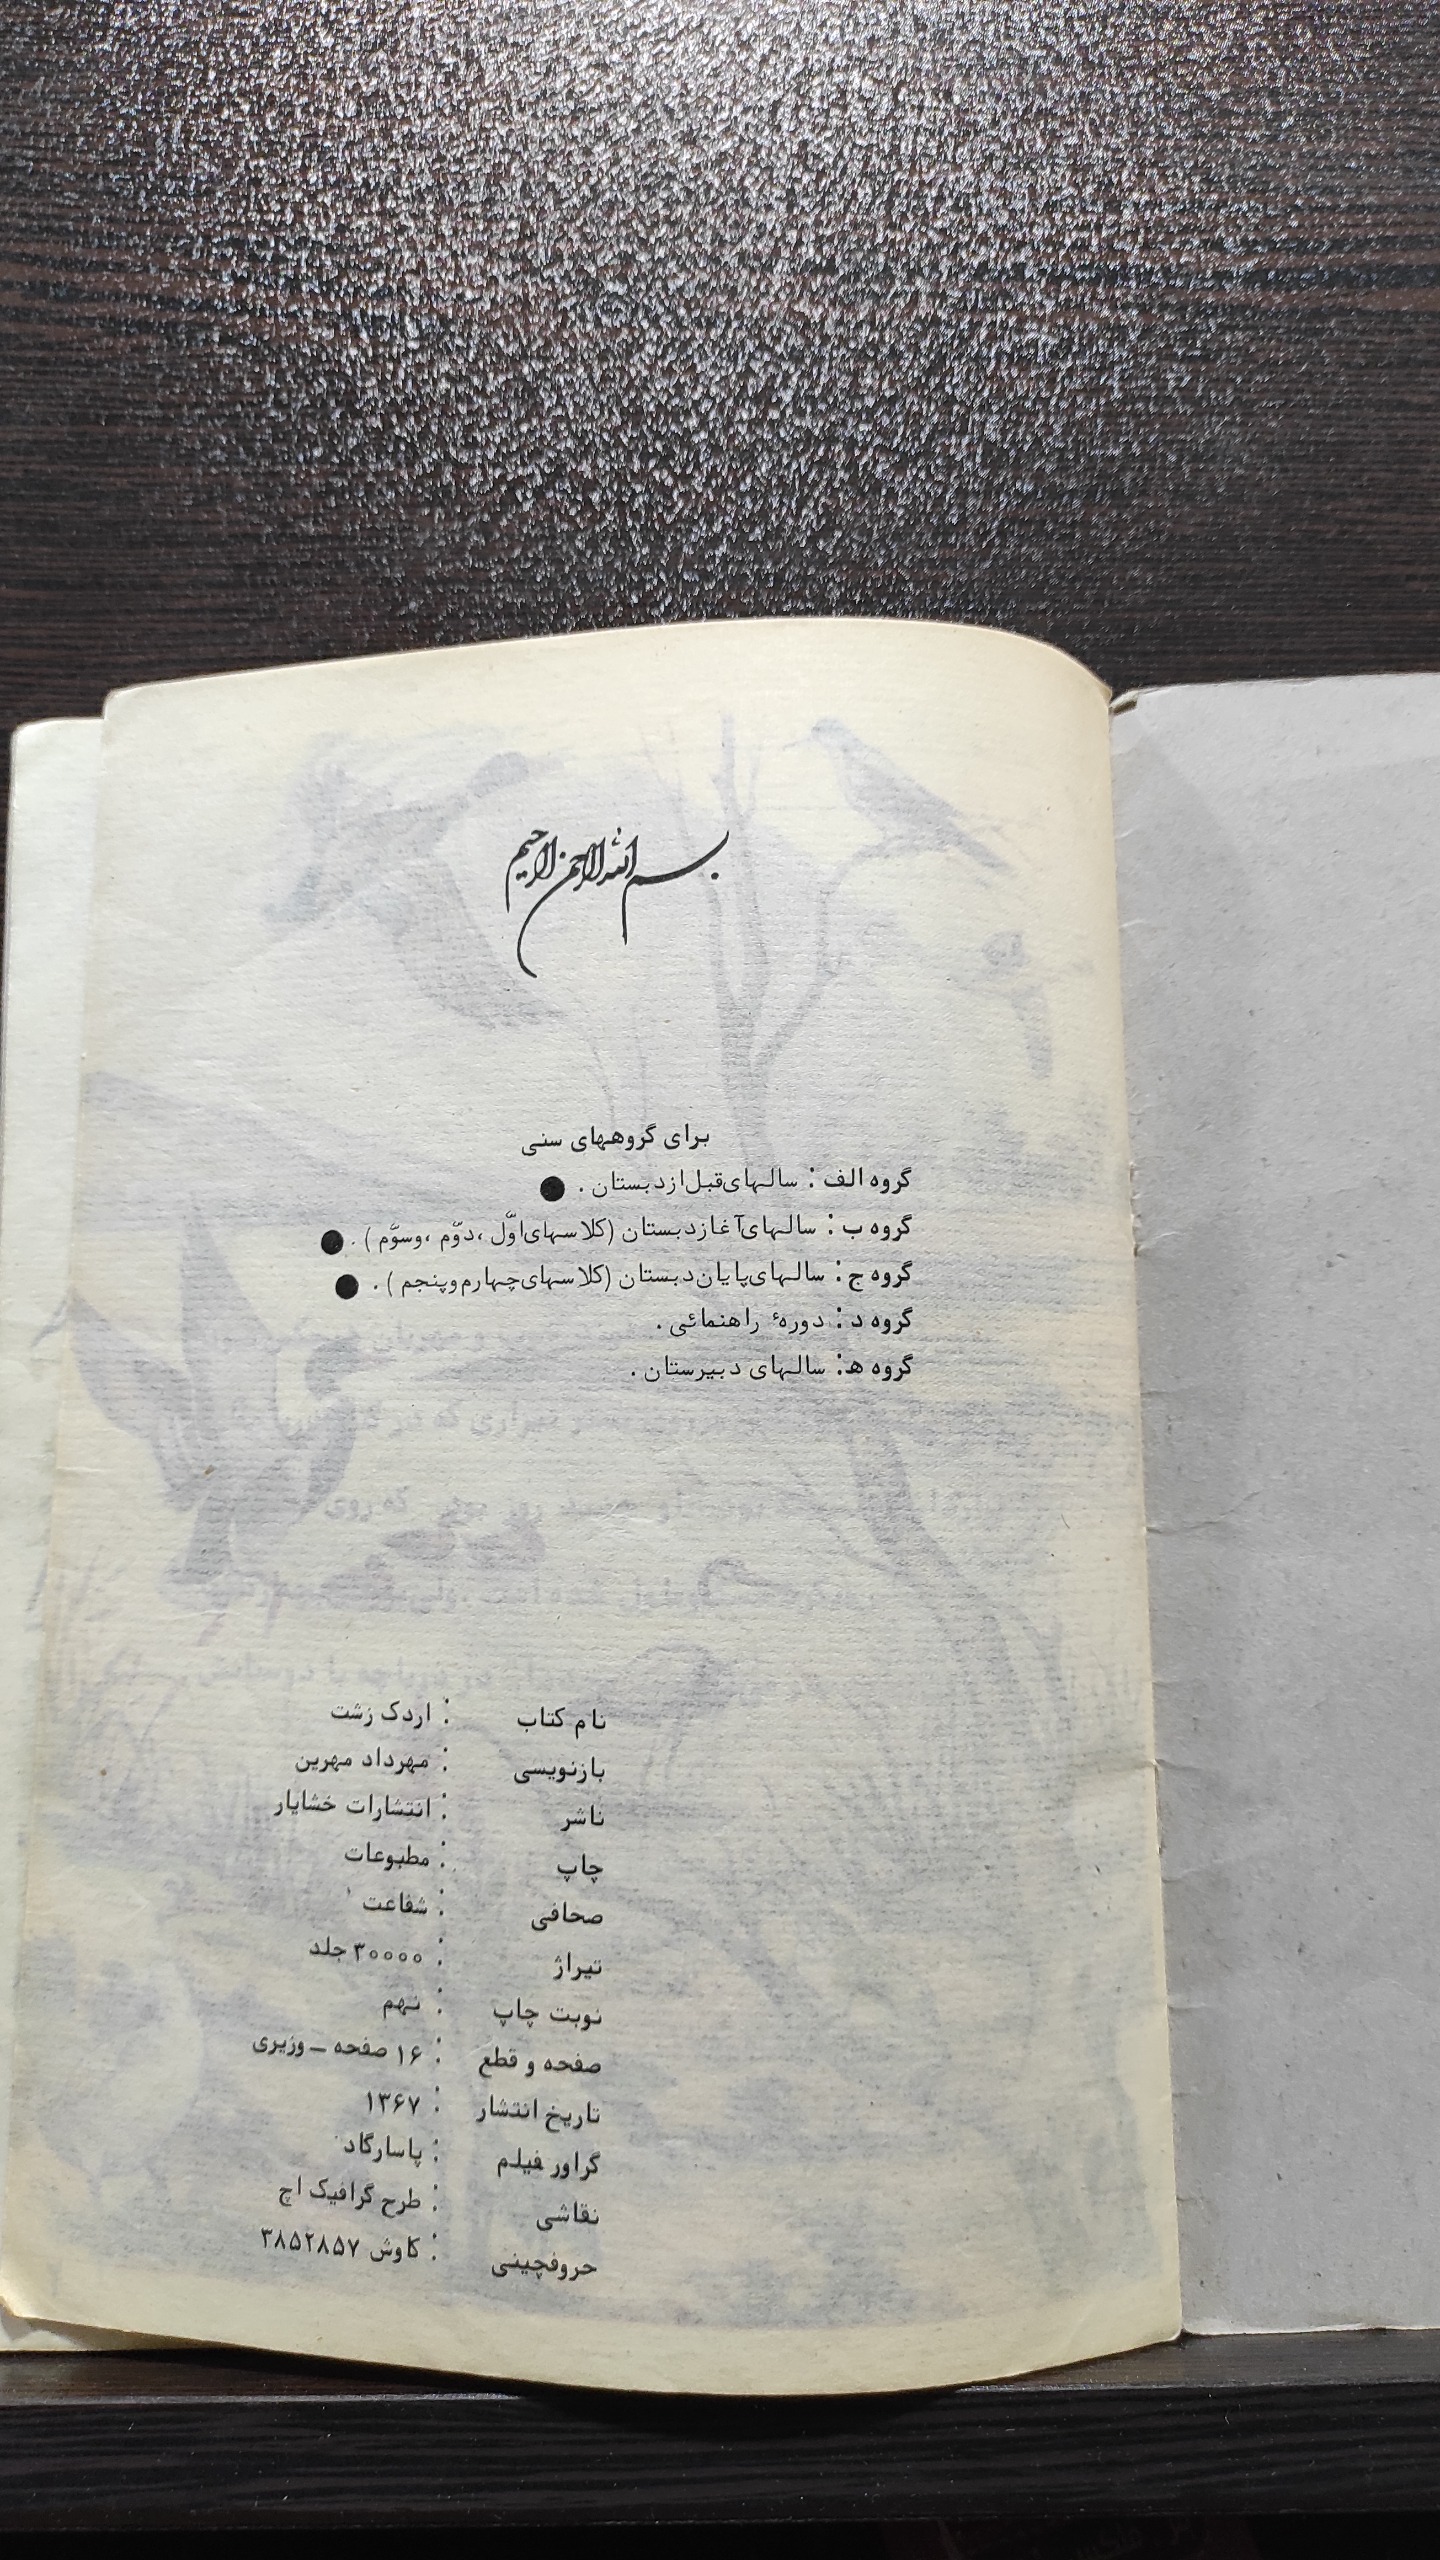 بسم الله الرحمن الرحیم
برای گروههای سنی
گروه الف : سالهای قبل از دبستان . ●
گروه ب : سالهای آغاز دبستان (کلاسهای اوّل ، دوّم ، وسوّم ) . ●
گروه ج : سالهای پایان دبستان (کلاسهای چهارم و پنجم ) . ●
گروه د : دورهٔ راهنمائی .
گروه ه : سالهای دبیرستان .
نام کتاب : اردک زشت
بازنویسی : مهرداد مهرین
ناشر : انتشارات خشایار
چاپ : مطبوعات
صحافی : شفاعت
تیراژ : ۳۰۰۰۰ جلد
نوبت چاپ : نهم
صفحه و قطع : ۱۶ صفحه – وزیری
تاریخ انتشار : ۱۳۶۷
گراور فیلم : پاسارگاد
نقاشی : طرح گرافیک اچ
حروفچینی : کاوش ۳۸۵۲۸۵۷